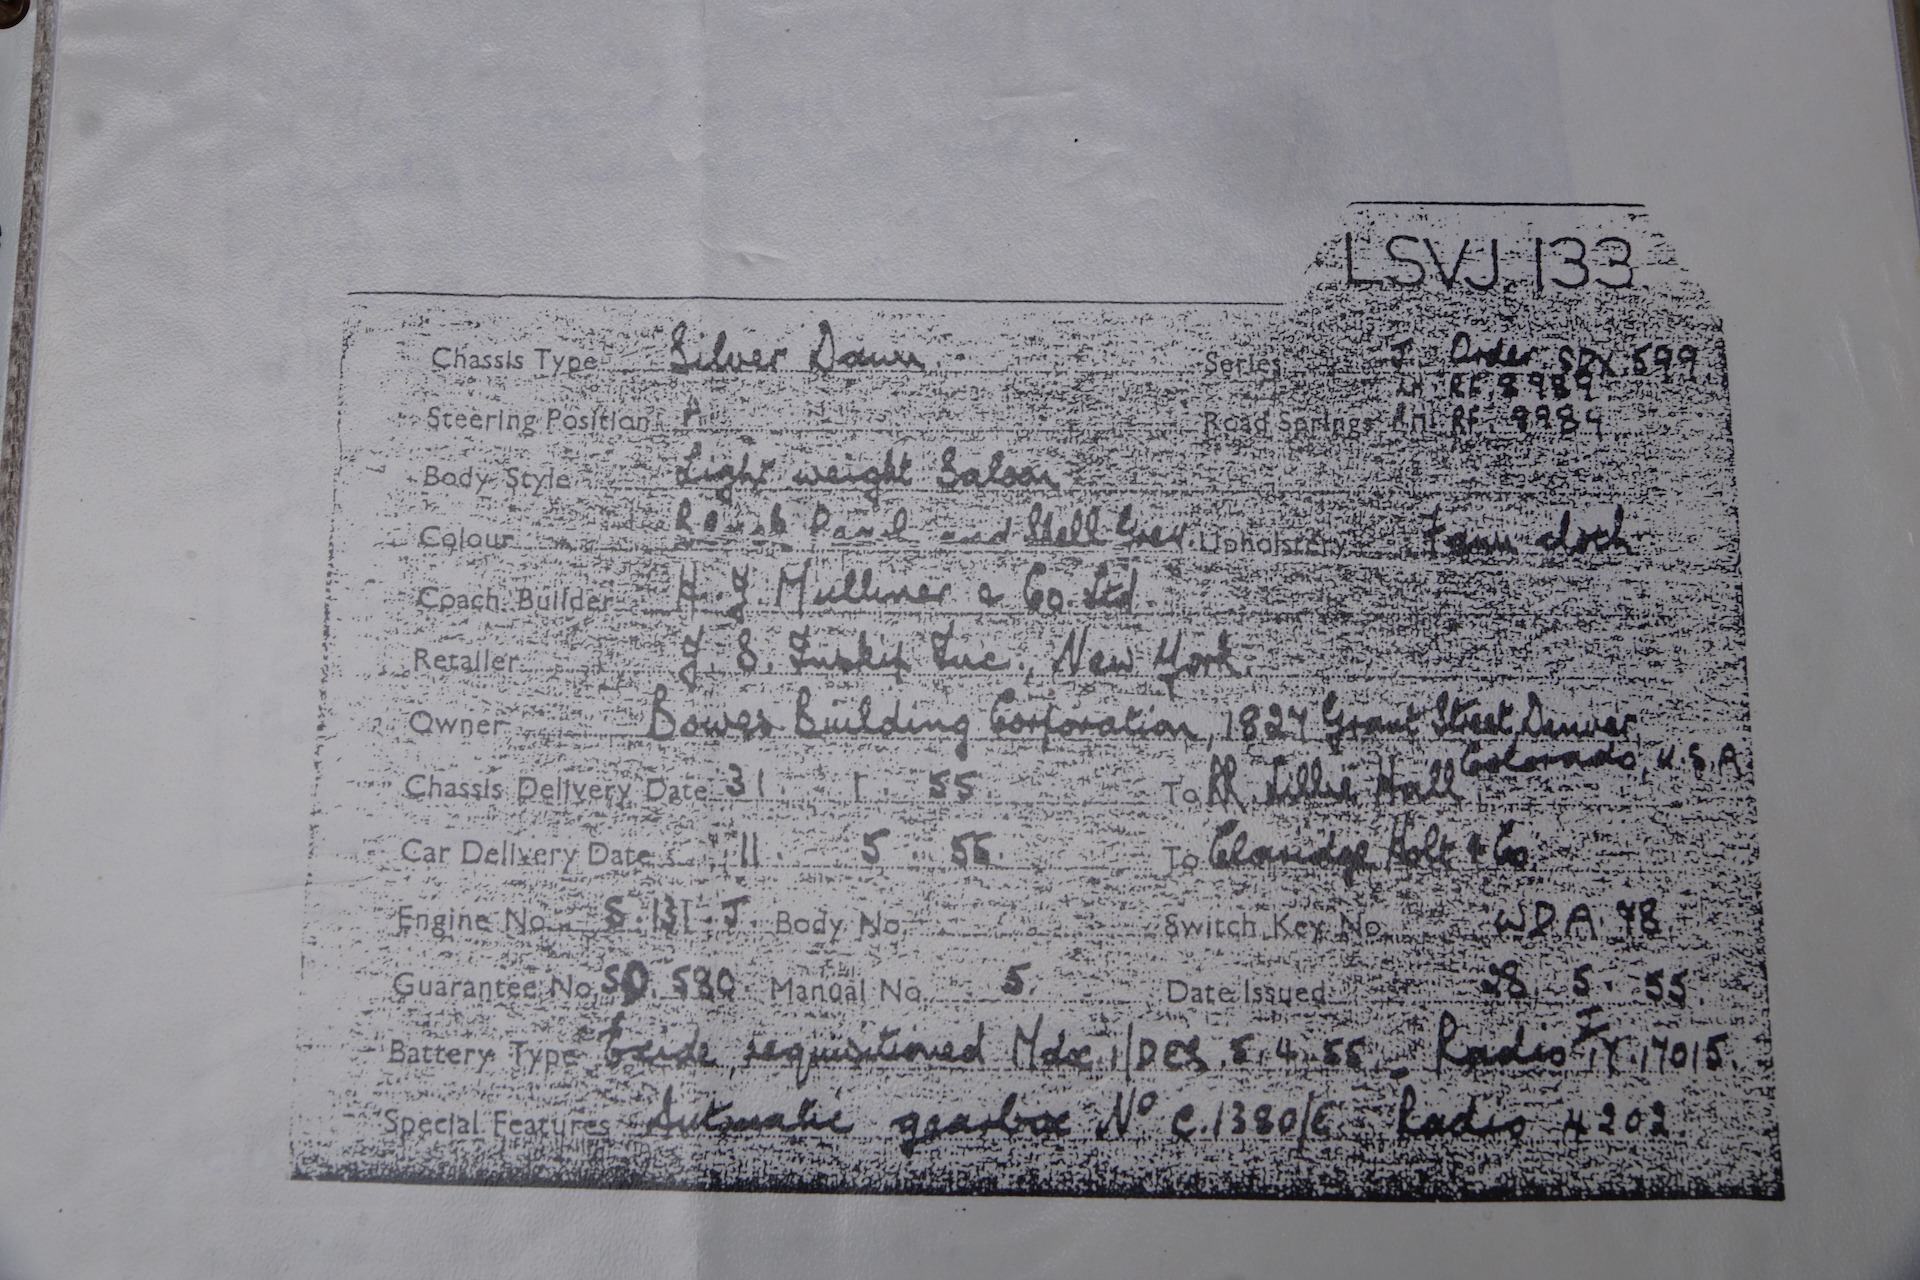 LSVJ.133
Chassis Type Silver Dawn Series J. Order SDX.599
Steering Position Road Springs RH. RF. 9989
Body Style Light weight Saloon
Colour Black Panel and Shell Grey Upholstery Fawn cloth
Coach Builder H. J. Mulliner & Co. Ltd.
Retailer J. S. Inskip Inc., New York.
Owner Bowes Building Corporation, 1827 Grant Street, Denver,
Colorado, U.S.A.
Chassis Delivery Date 31. 1. 55. To RR. Lillie Hall
Car Delivery Date 11. 5. 55. To Claridge Holt & Co
Engine No. S. 131. J. Body No. Switch Key No. WDA. 78
Guarantee No. SD. 580 Manual No. 5. Date Issued 28. 5. 55.
Battery Type Exide, requisitioned 5.4.55. Radio 17015.
Special Features Automatic gearbox No C.1380/E. Radio 4202.